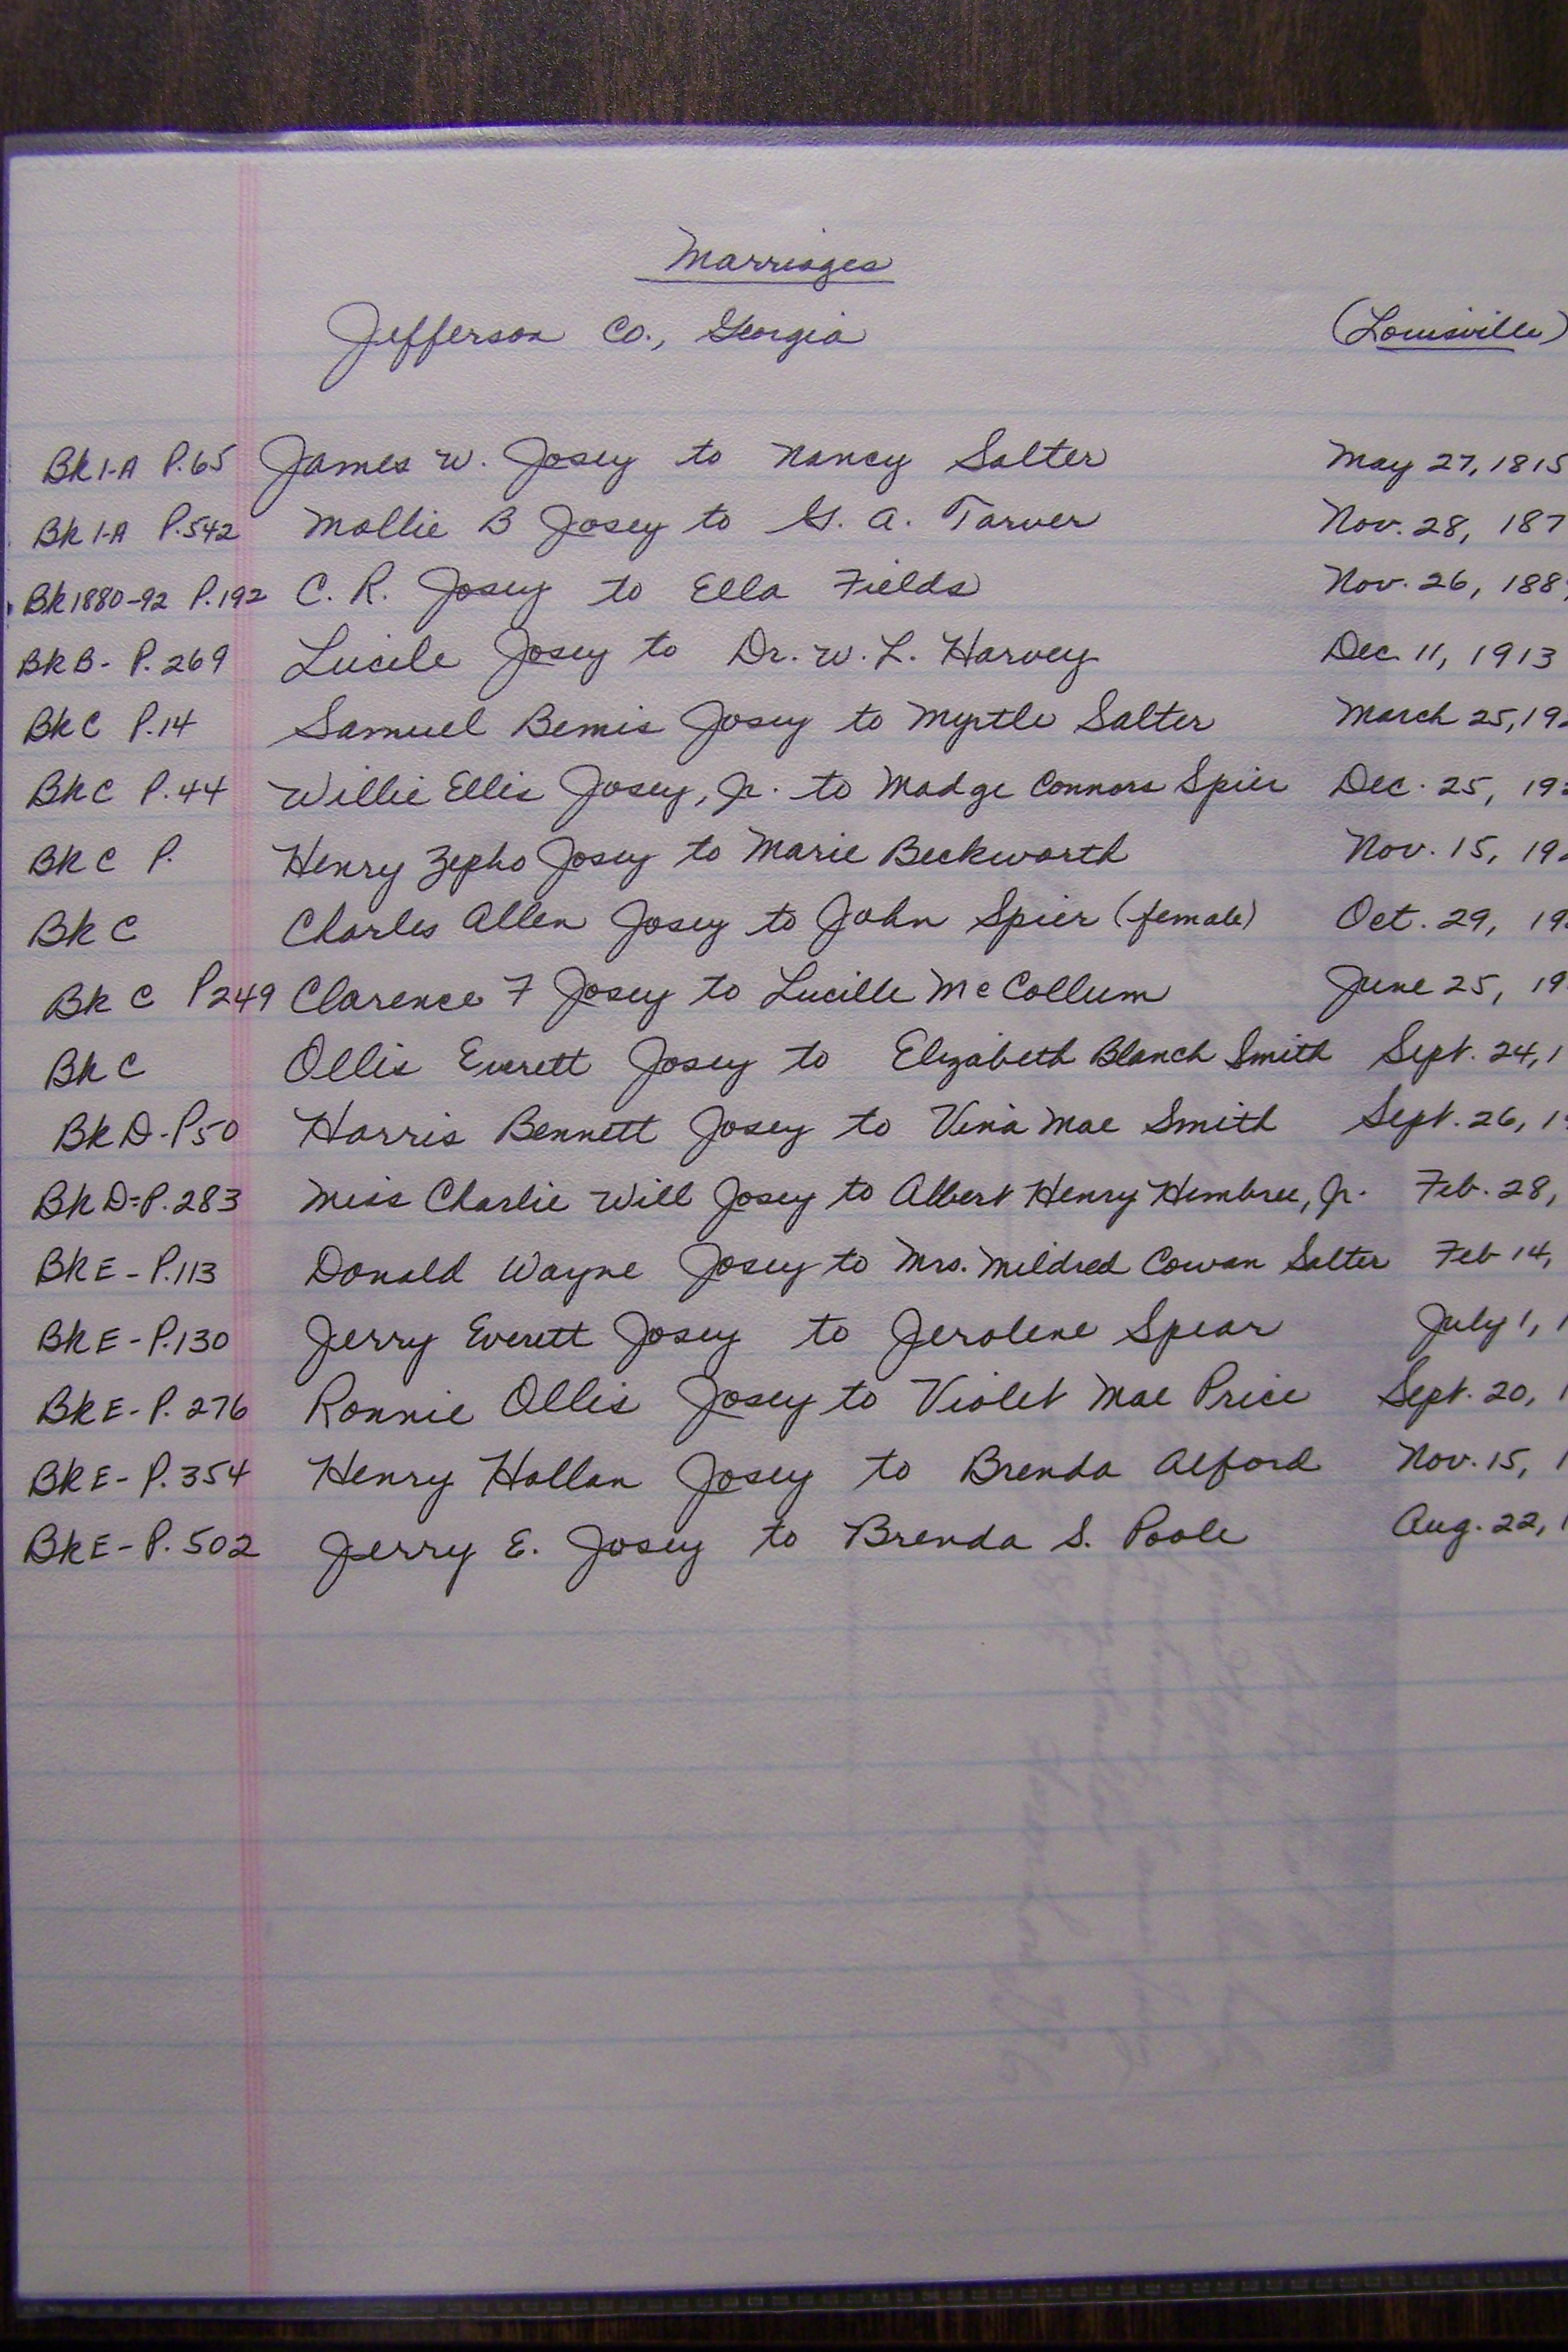 Marriages
Jefferson Co., Georgia (Louisville)
Bk 1-A P.65 James W. Josey to Nancy Salter May 27, 1815
Bk 1-A P.542 Mollie B Josey to G. A. Tarver Nov. 28, 187
Bk 1880-92 P.192 C. R. Josey to Ella Fields Nov. 26, 188
Bk B- P. 269 Lucile Josey to Dr. W. L. Harvey Dec 11, 1913
Bk C P.14 Samuel Bemis Josey to Myrtle Salter March 25, 19
Bk C P.44 Willie Ellis Josey, Jr. to Madge Connors Spier Dec. 25, 19
Bk C P. Henry Zepho Josey to Marie Beckworth Nov. 15, 19
Bk C Charles Allen Josey to John Spier (female) Oct. 29, 19
Bk C P249 Clarence F Josey to Lucille McCollum June 25, 19
Bk C Ollis Everett Josey to Elizabeth Blanch Smith Sept. 24, 1
Bk D-P50 Harris Bennett Josey to Vina Mae Smith Sept. 26, 1
Bk D-P. 283 Miss Charlie Will Josey to Albert Henry Hembree, Jr. Feb. 28,
Bk E - P.113 Donald Wayne Josey to Mrs. Mildred Cowan Salter Feb 14,
Bk E - P.130 Jerry Everett Josey to Jerolene Spear July 1, 1
Bk E - P. 276 Ronnie Ollis Josey to Violet Mae Price Sept. 20, 1
Bk E - P. 354 Henry Hollan Josey to Brenda Alford Nov. 15, 1
Bk E - P. 502 Jerry E. Josey to Brenda S. Poole Aug. 22, 1